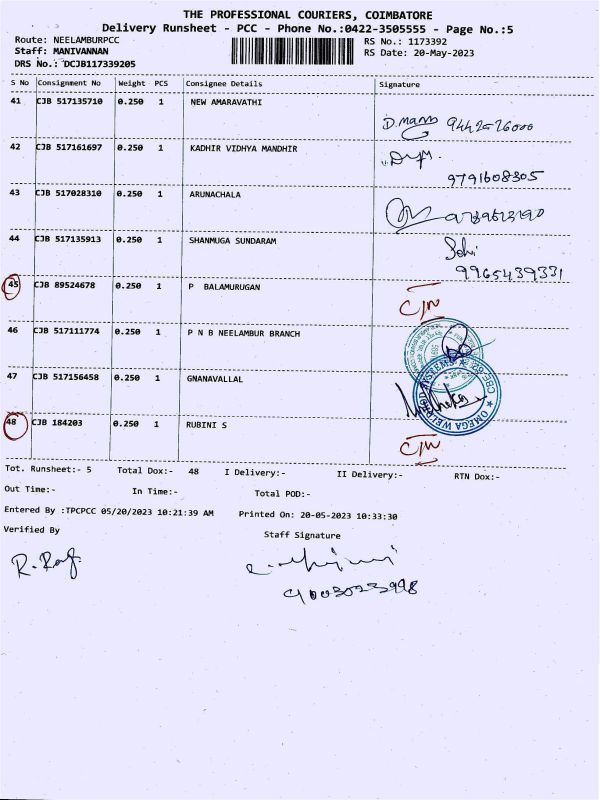 THE PROFESSIONAL COURIERS, COIMBATORE
Delivery Runsheet - PCC - Phone No.:0422-3505555 - Page No.:5
Route: NEELAMBURPCC RS No.: 1173392
Staff: MANIVANNAN RS Date: 20-May-2023
DRS No.: DCJB117339205
S No Consignment No Weight PCS Consignee Details Signature
41 CJB 517135710 0.250 1 NEW AMARAVATHI
D.mano
42 CJB 517161697 0.250 1 KADHIR VIDHYA MANDHIR
9791608305
43 CJB 517028310 0.250 1 ARUNACHALA
44 CJB 517135913 0.250 1 SHANMUGA SUNDARAM
9965439331
45 CJB 89524678 0.250 1 P BALAMURUGAN
46 CJB 517111774 0.250 1 P N B NEELAMBUR BRANCH
47 CJB 517156458 0.250 1 GNANAVALLAL
OMEGA
48 CJB 184203 0.250 1 RUBINI S
Tot. Runsheet:- 5 Total Dox:- 48 I Delivery:- II Delivery:- RTN Dox:-
Out Time:- In Time:- Total POD:-
Entered By :TPCPCC 05/20/2023 10:21:39 AM Printed On: 20-05-2023 10:33:30
Verified By Staff Signature
R. Raj
9003023998